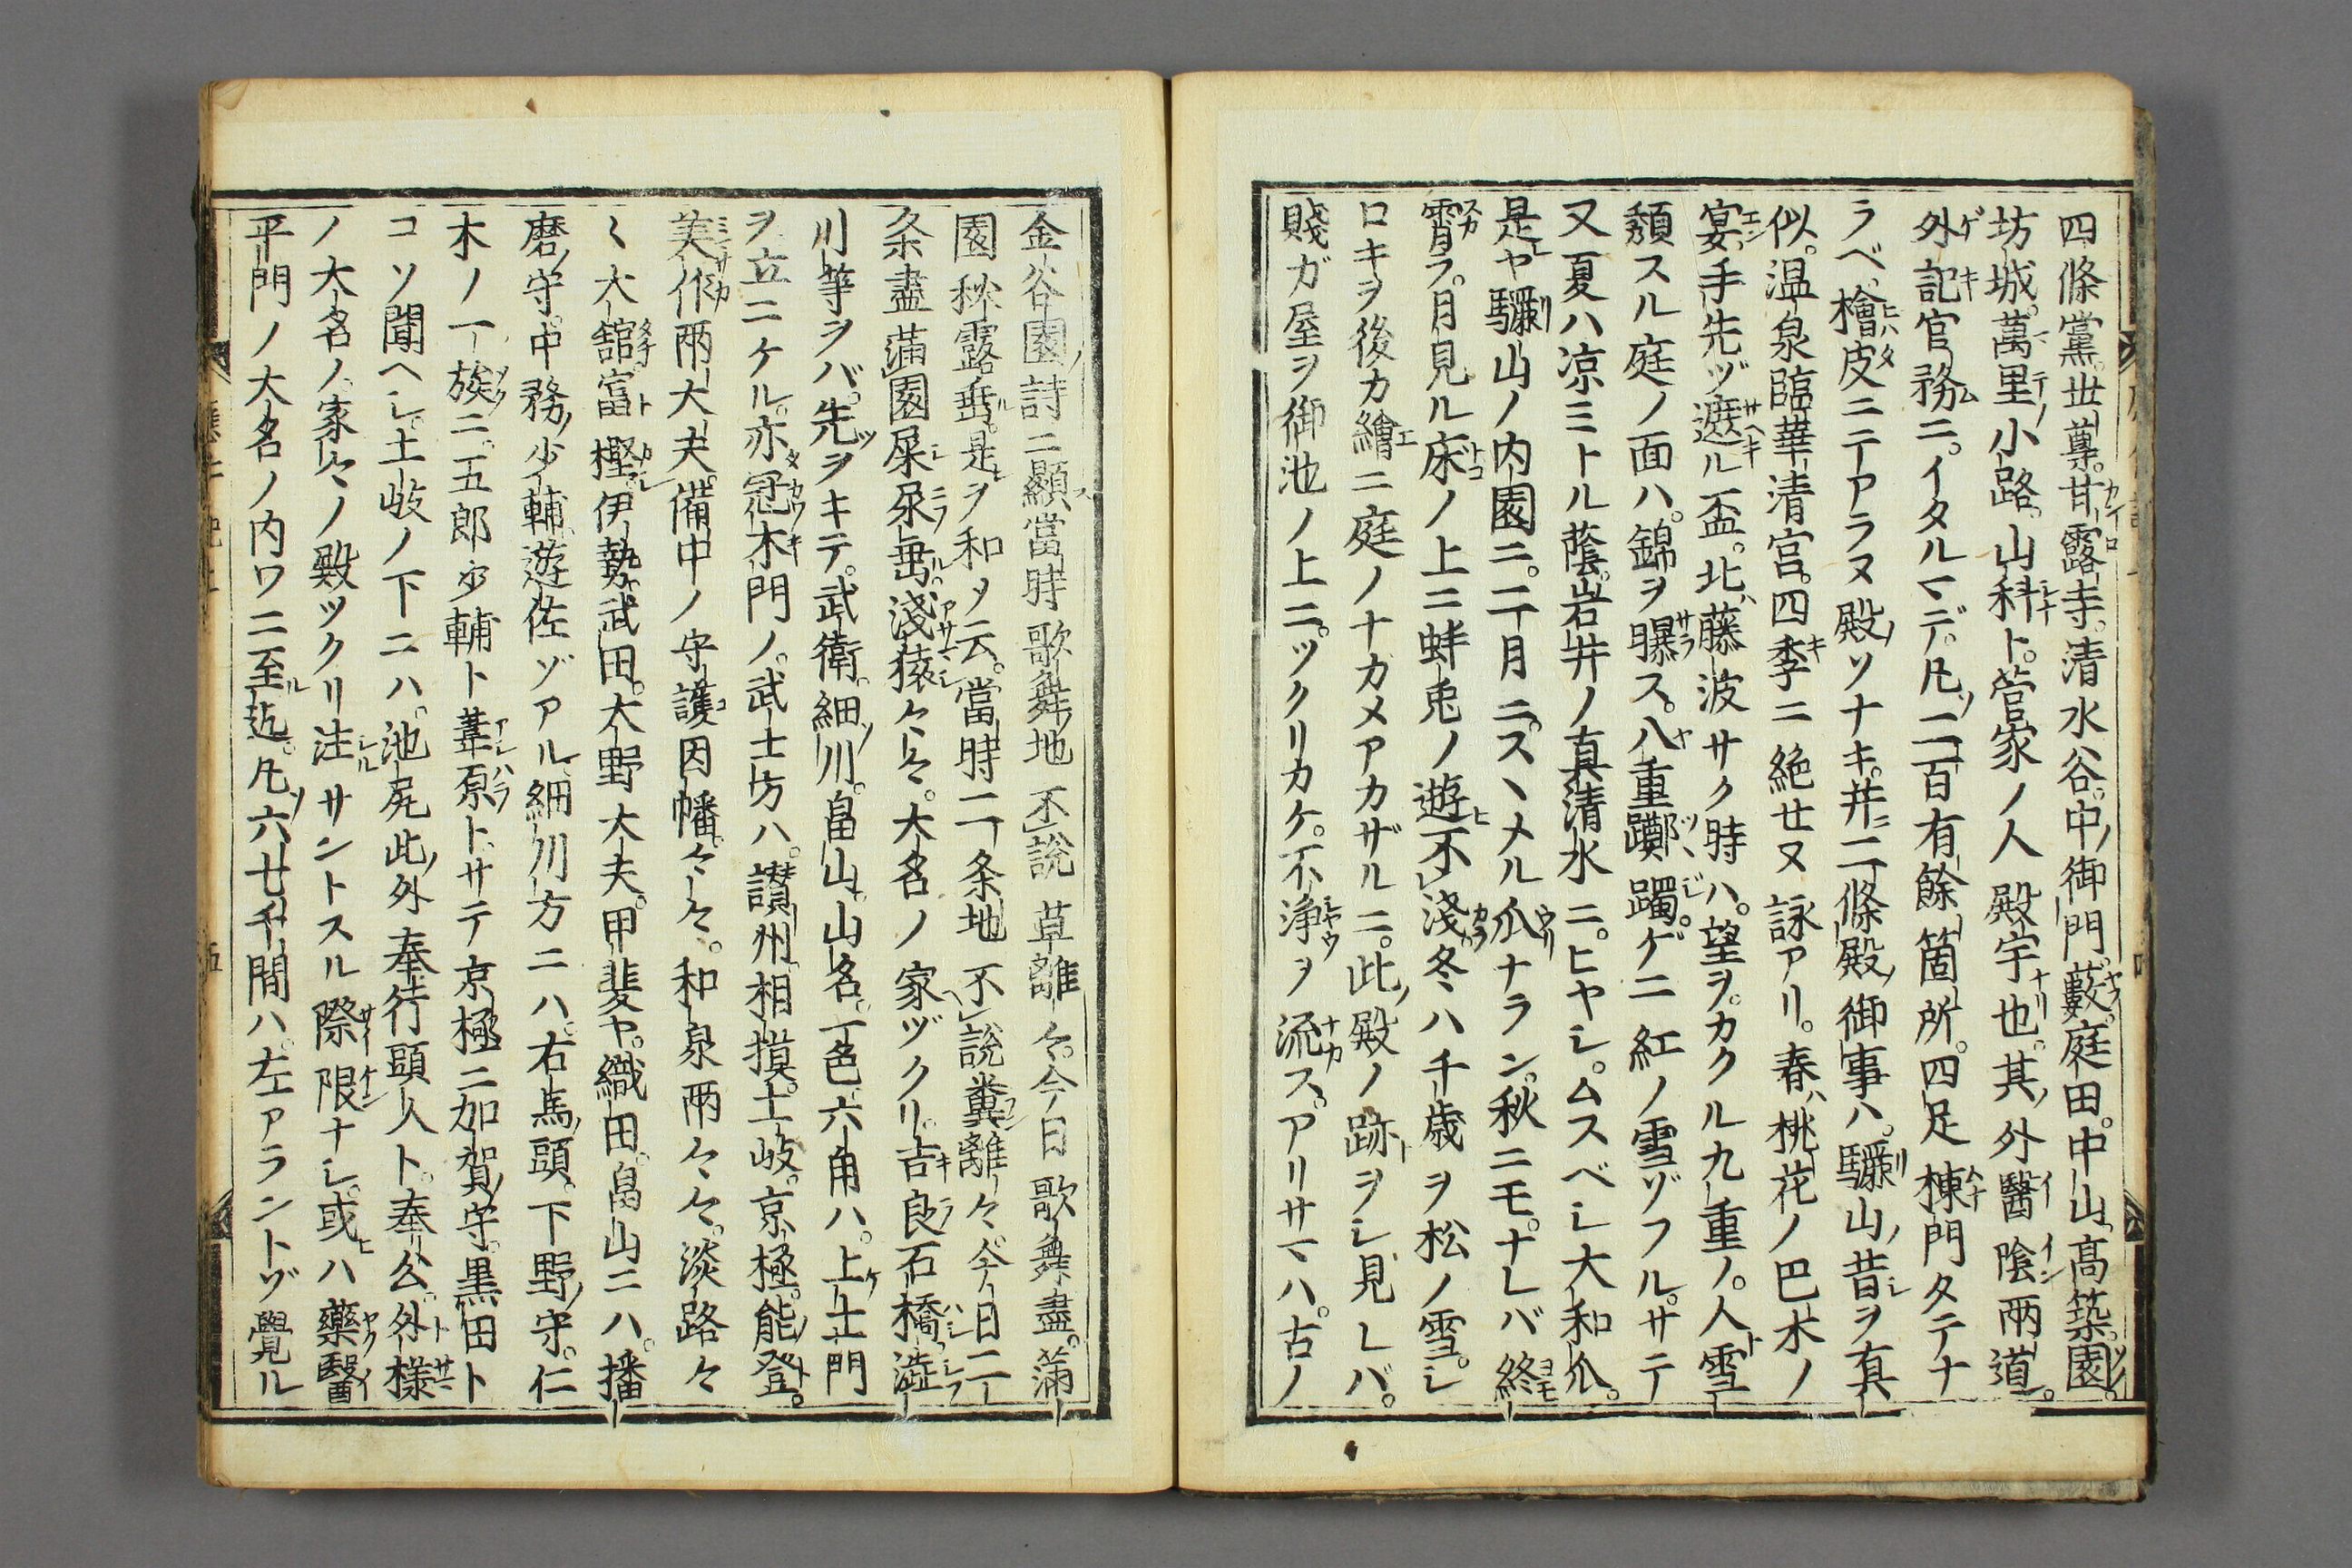 四條黨。世尊。甘露寺。清水谷。中御門。藪。庭田。中山。髙築。園。
坊城。萬里小路。山科ト。菅家ノ人殿宇也。其外醫陰兩道。
外記官務ニ。イタルマデ。凡二百有餘箇所。四足棟門タテナ
ラベ。檜皮ニテアラヌ殿ソナキ。并ニ二條殿御事ハ。驪山昔ヲ真
似。温泉臨華清宮。四季ニ絶セヌ詠アリ。春ハ桃花ノ巴木ノ
宴。手先ヅ遮ル盃。北ハ藤波サク時ハ。望ヲ。カクル九重ノ。人雪
頽スル庭ノ面ハ。錦ヲ曝ス。八重躑躅。ゲニ紅ノ雪ゾフル。サテ
又夏ハ凉ミトル蔭。岩井ノ真清水ニ。ヒヤシ。ムスベシ大和瓜。
是ヤ驪山ノ内園ニ。二月ニ。スヽメル瓜ナラン。秋ニモ。ナレバ終
霄ラ。月見ル床ノ上ニ蚌兎ノ遊不淺。冬ハ千歳ヲ松ノ雪。シ
ロキヲ後カ繪ニ庭ノナカメアカザルニ。此殿ノ跡ヲシ見レバ。
賤ガ屋ヲ御池ノ上ニ。ツクリカケ。不淨ヲ流ス。アリサマハ。古ノ
金谷園詩ニ顯當時歌舞地不說草離々。今日歌舞盡。滿
園秋露垂。是ヲ和メ云。當時二条地不說糞離々。今日二
条盡滿園屎尿垂。淺猿々々。大名ノ家ヅクリ。吉良石橋澁
川等ヲバ。先ヲキテ。武衛。細川。畠山。山名。一色六角ハ。上土門
ヲ立ニケル。亦冠木門ノ。武士方ハ。讃州相摸。土岐。京極。能登。
美作兩大夫。備中ノ守護因幡。々々。和泉兩々々。淡路々
〱大舘富樫。伊勢武田。大野大夫。甲斐ヤ。織田。畠山ニハ。播
磨守。中務少輔遊佐ゾアル。細川方ニハ。右馬頭。下野守。仁
木ノ一族ニ。五郎少輔ト葦原ト。サテ京極ニ加賀守。黒田ト
コソ聞ヘシ。土岐ノ下ニハ。池尻此外奉行頭人ト。奉公。外様
ノ大名ノ。家々ノ殿ツクリ注サントスル際限ナシ。或ハ藥醫
平門ノ大名ノ内ワニ至迄。凡六七千間ハ。左アラントゾ覺ル